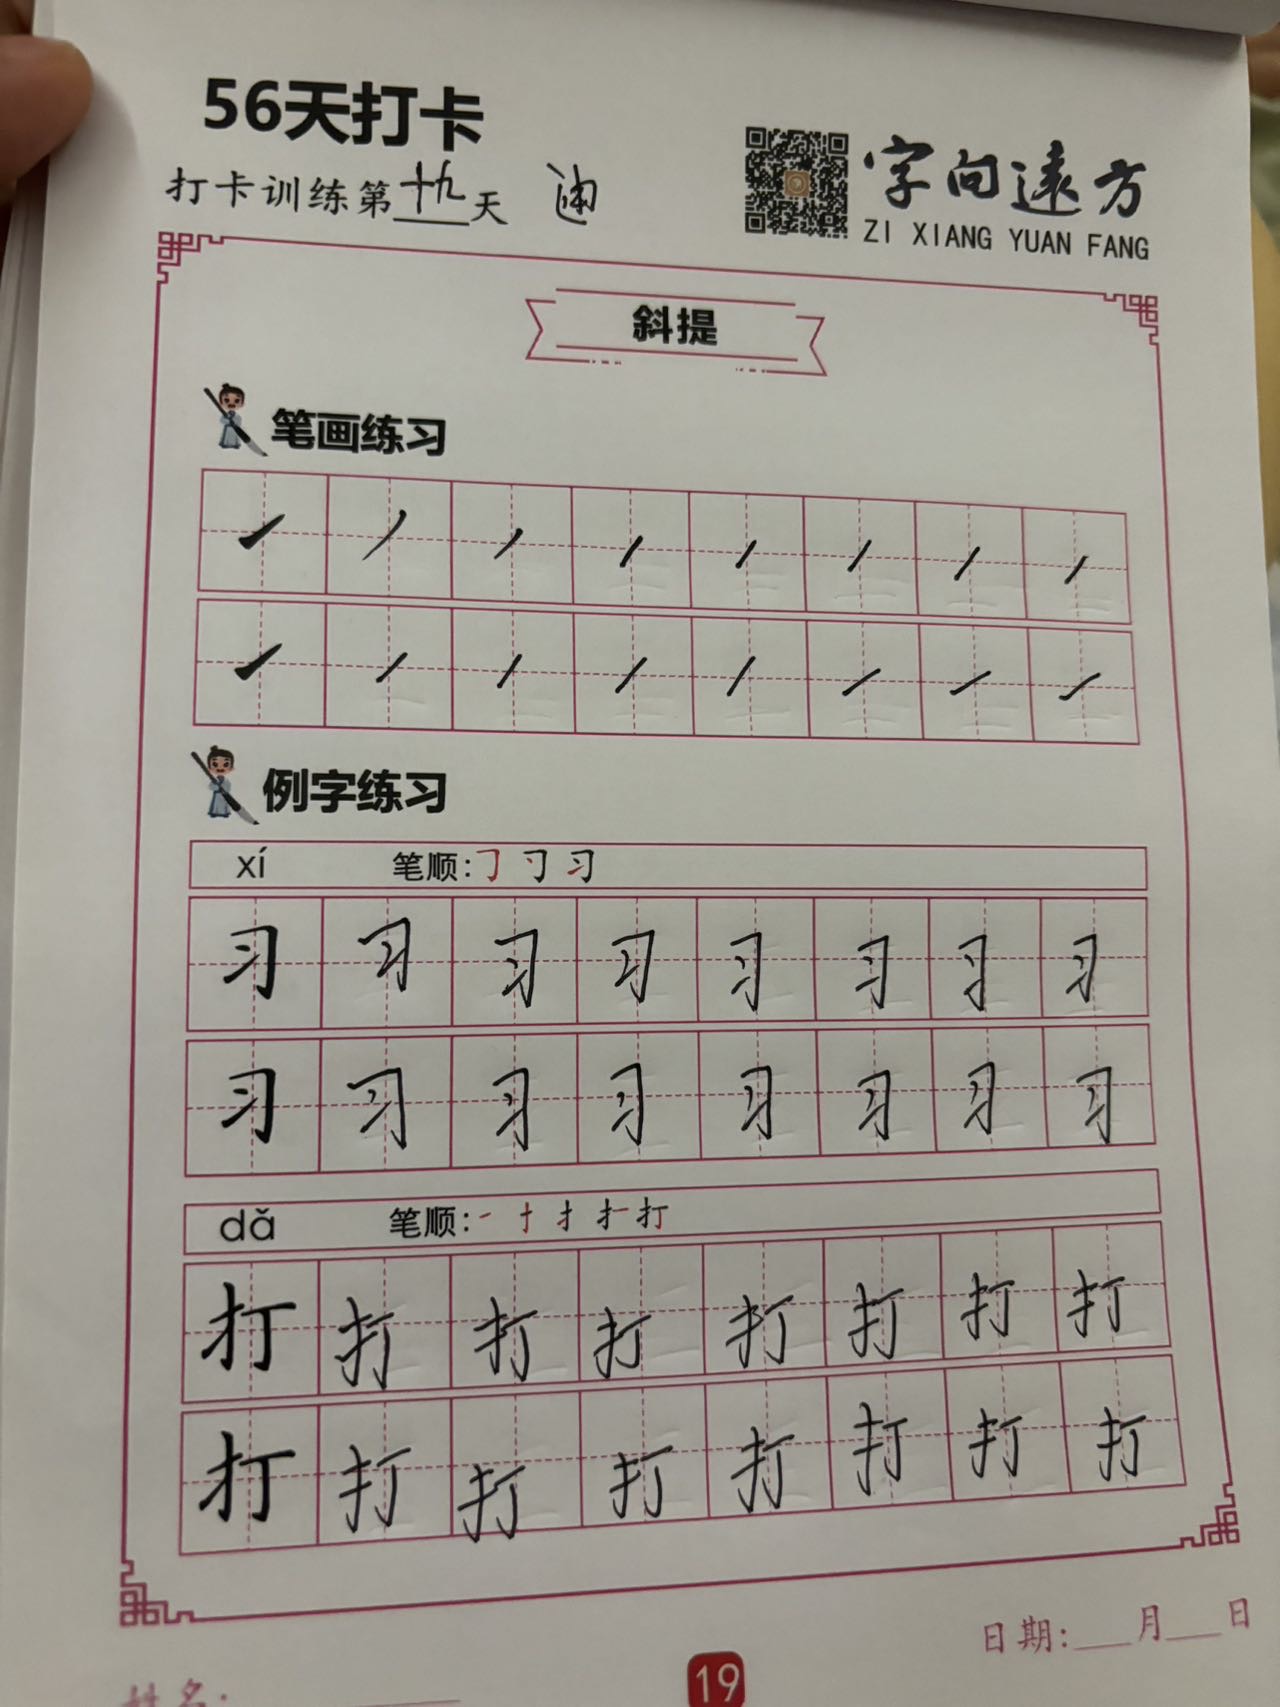 56天打卡
打卡训练第十九天 迪
字向遠方
ZI XIANG YUAN FANG
斜提
笔画练习
例字练习
xí 笔顺:
习 习 习 习 习 习 习 习
习 习 习 习 习 习 习 习
dǎ 笔顺: 一 十 扌 打
打 打 打 打 打 打 打 打
打 打 打 打 打 打 打 打
日期:___月___日
姓名:
19